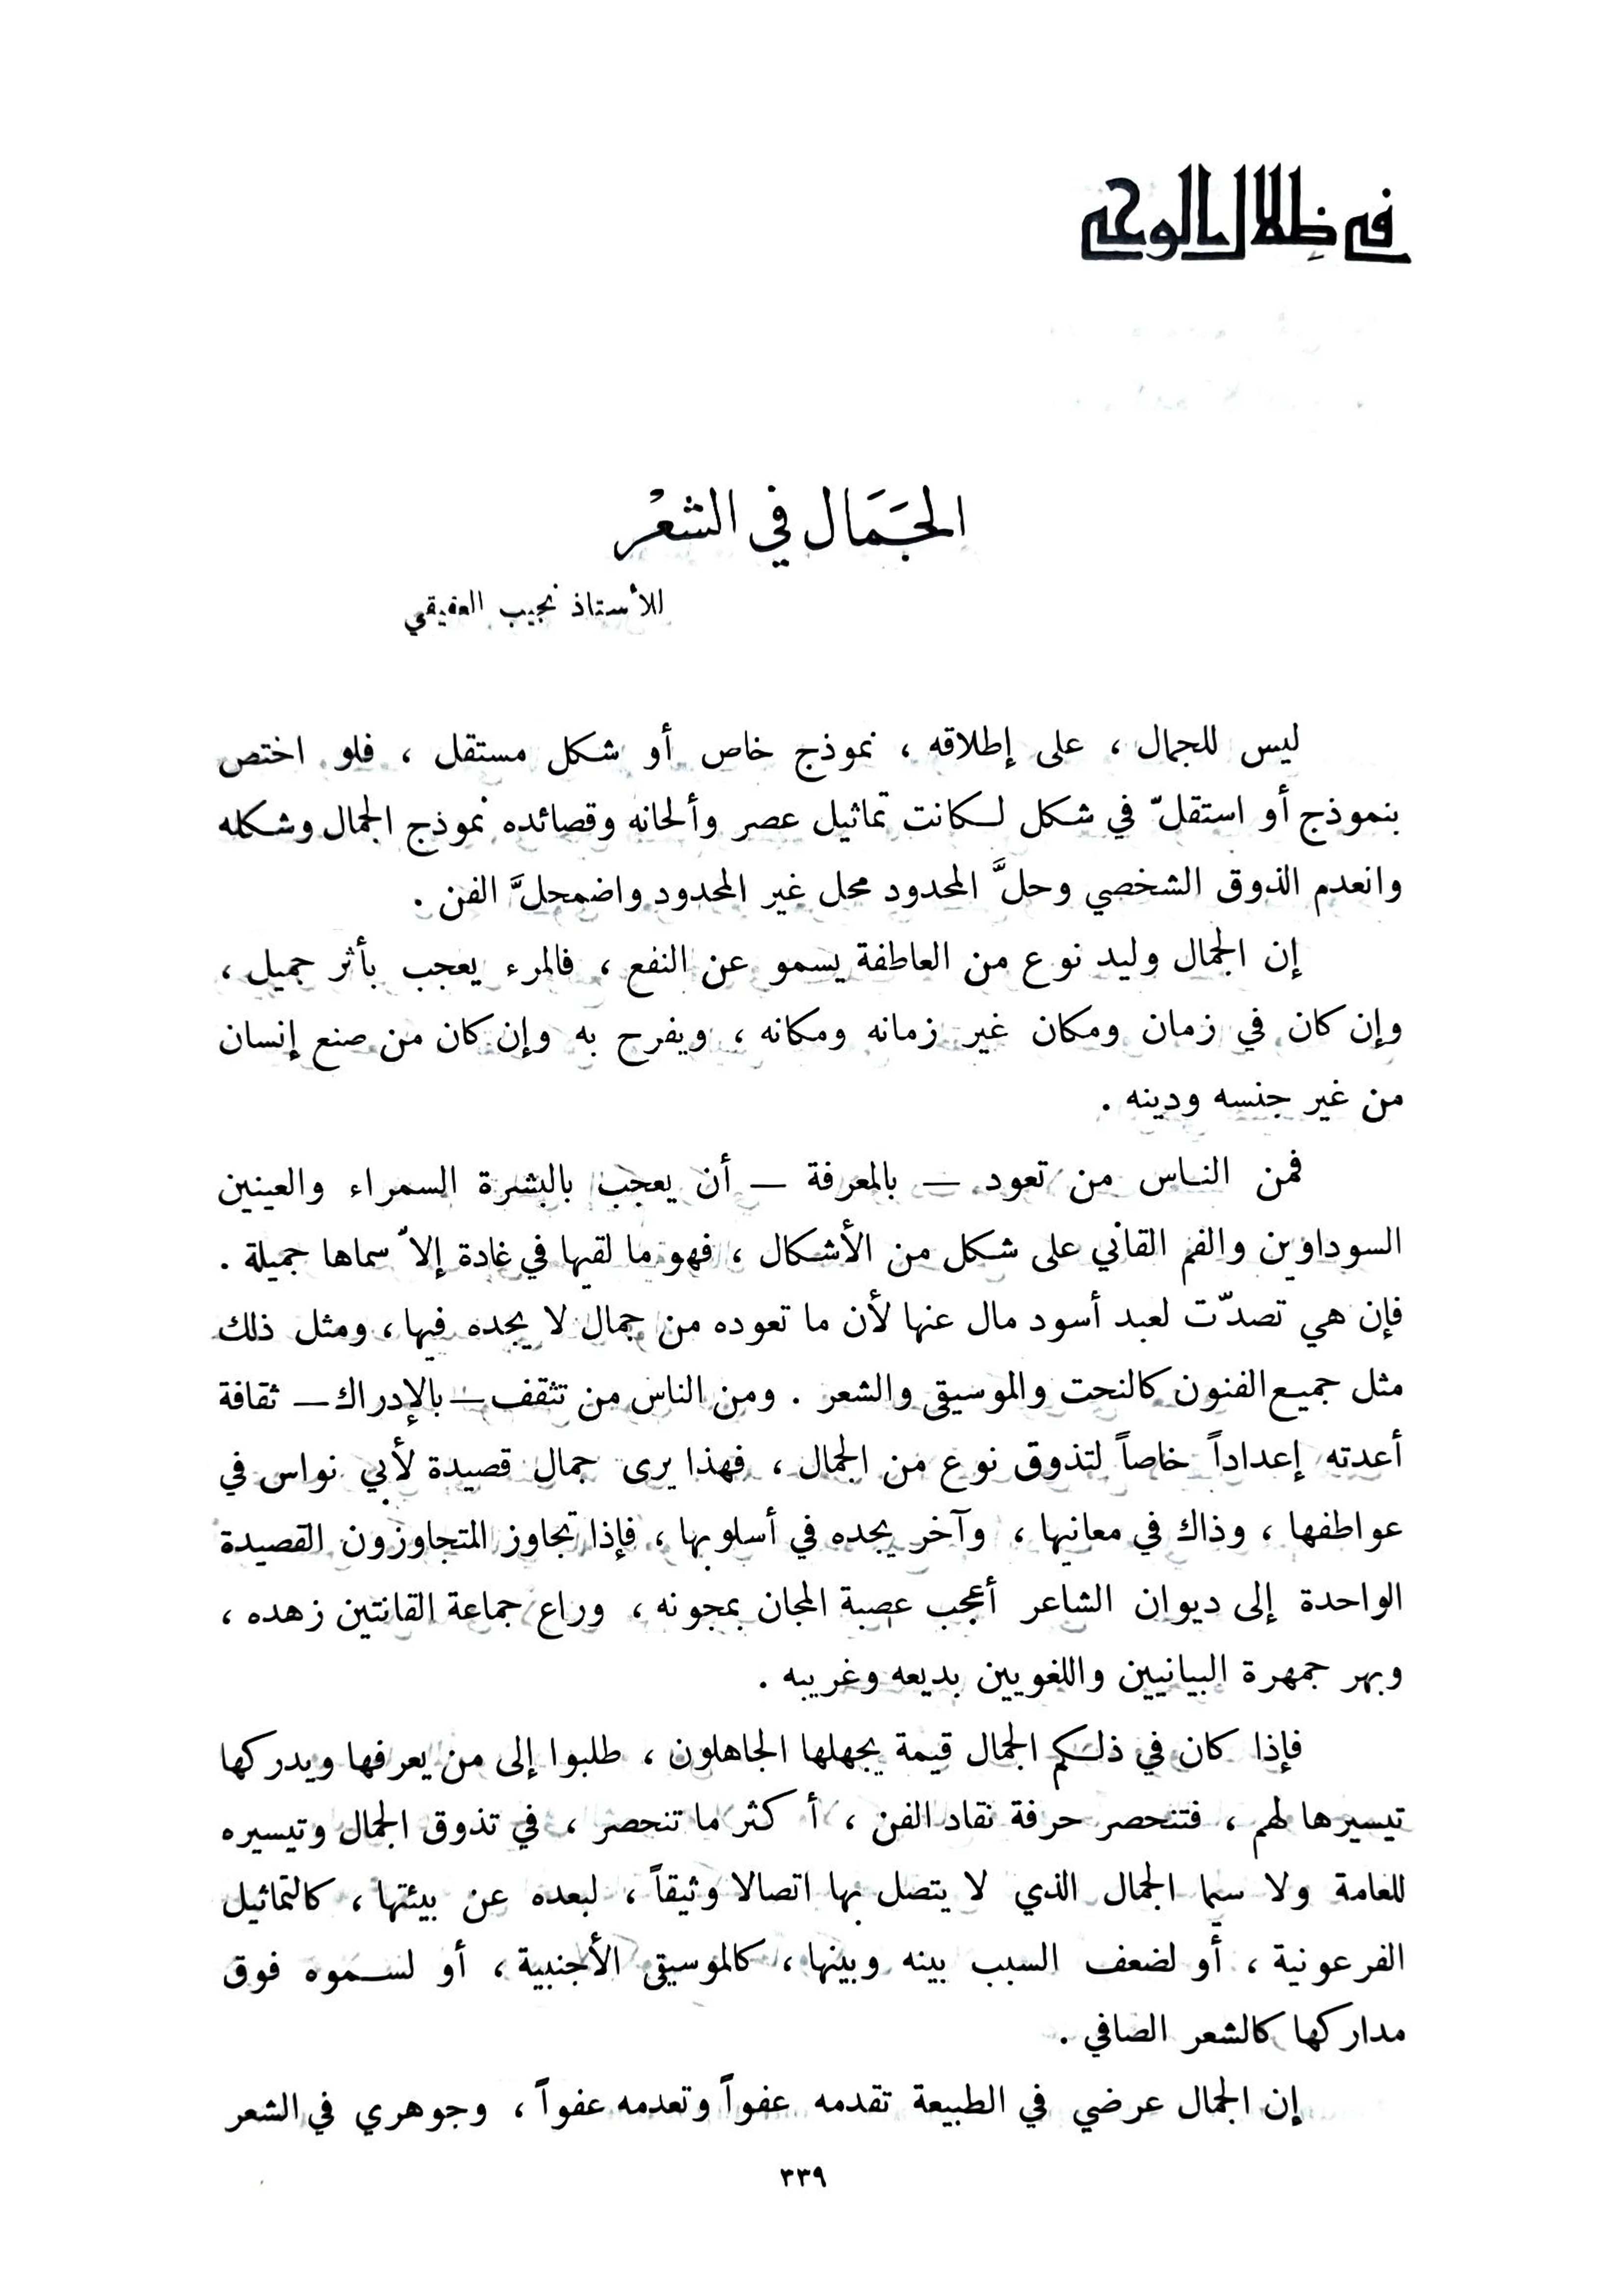 في ظلال الوحي
الجَمَال في الشعْر
للأستاذ نجيب العقيقي
ليس للجمال ، على إطلاقه ، نموذج خاص أو شكل مستقل ، فلو اختص
بنموذج أو استقلّ في شكل لكانت تماثيل عصر وألحانه وقصائده نموذج الجمال وشكله
وانعدم الذوق الشخصي وحلَّ المحدود محل غير المحدود واضمحلَّ الفن .
إن الجمال وليد نوع من العاطفة يسمو عن النفع ، فالمرء يعجب بأثر جميل ،
وإن كان في زمان ومكان غير زمانه ومكانه ، ويفرح به وإن كان من صنع إنسان
من غير جنسه ودينه .
فمن الناس من تعود — بالمعرفة — أن يعجب بالبشرة السمراء والعينين
السوداوين والفم القاني على شكل من الأشكال ، فهو ما لقيها في غادة إلاّ سماها جميلة .
فإن هي تصدّت لعبد أسود مال عنها لأن ما تعوده من جمال لا يجده فيها ، ومثل ذلك
مثل جميع الفنون كالنحت والموسيقى والشعر . ومن الناس من تثقف — بالإدراك — ثقافة
أعدته إعداداً خاصاً لتذوق نوع من الجمال ، فهذا يرى جمال قصيدة لأبي نواس في
عواطفها ، وذاك في معانيها ، وآخر يجده في أسلوبها ، فإذا تجاوز المتجاوزون القصيدة
الواحدة إلى ديوان الشاعر أعجب عصبة المجان بمجونه ، وراع جماعة القانتين زهده ،
وبهر جمهرة البيانيين واللغويين بديعه وغريبه .
فإذا كان في ذلكم الجمال قيمة يجهلها الجاهلون ، طلبوا إلى من يعرفها ويدركها
تيسيرها لهم ، فتنحصر حرفة نقاد الفن ، أكثر ما تنحصر ، في تذوق الجمال وتيسيره
للعامة ولا سيما الجمال الذي لا يتصل بها اتصالا وثيقاً ، لبعده عن بيئتها ، كالتماثيل
الفرعونية ، أو لضعف السبب بينه وبينها ، كالموسيقى الأجنبية ، أو لسموه فوق
مداركها كالشعر الصافي .
إن الجمال عرضي في الطبيعة تقدمه عفواً وتعدمه عفواً ، وجوهري في الشعر
٣٣٩